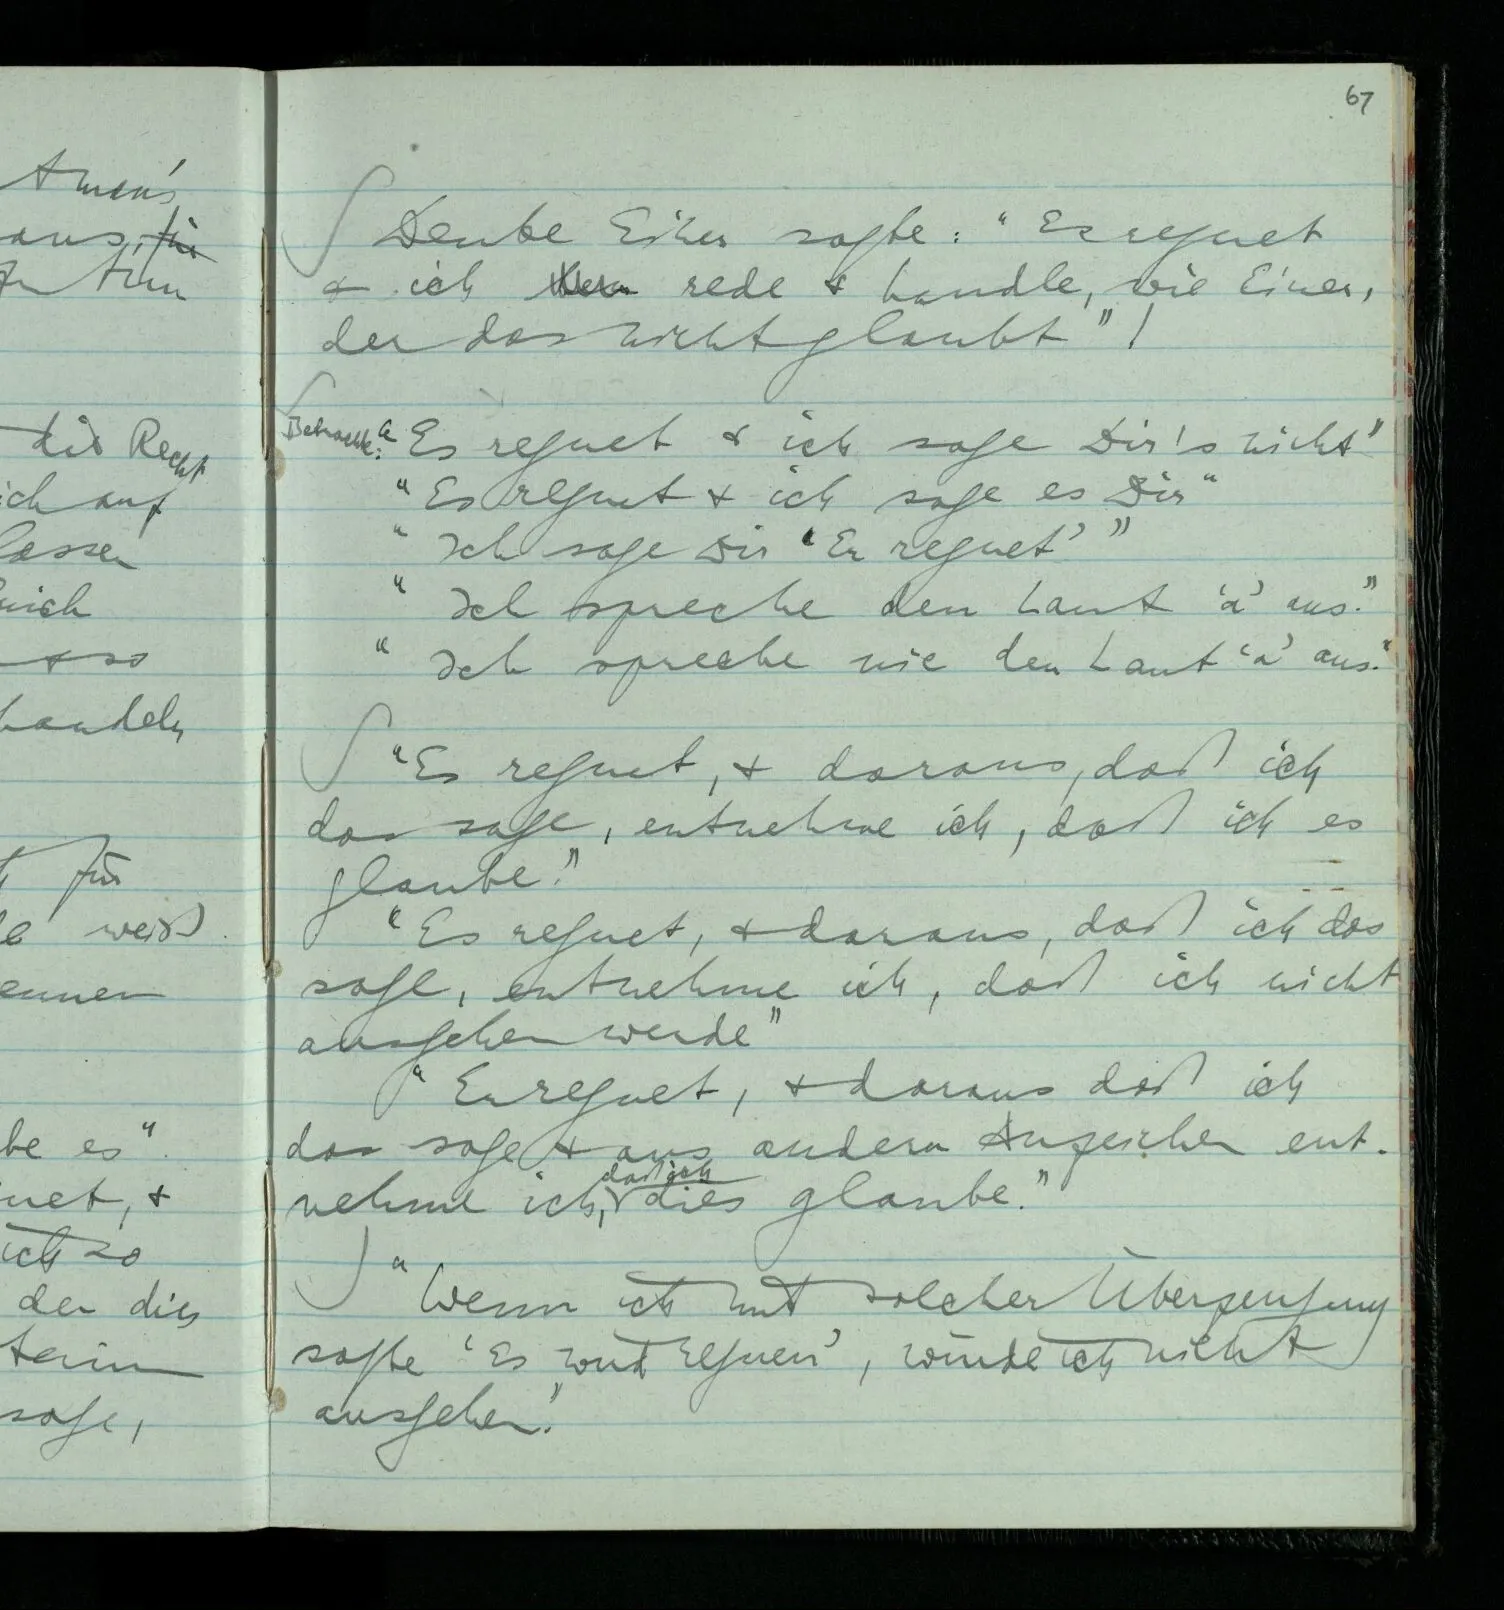 67
t man's
aus, für
zu tun
die Recht
ich auf
lassen
mich
& so
handeln
für
weiß
ennen
be es".
net, &
ich so
der dies
sage,
∫ Denke Einer sagte: "Es regnet
& ich rede & handle, wie Einer,
der das nicht glaubt"!
∫ Betrachte: "Es regnet & ich sage Dir's nicht"
"Es regnet & ich sage es Dir"
"Ich sage Dir 'Es regnet'"
"Ich spreche den Laut 'a' aus."
"Ich spreche nie den Laut 'a' aus."
∫ "Es regnet, & daraus, daß ich
das sage, entnehme ich, daß ich es
glaube."
"Es regnet, & daraus, daß ich das
sage, entnehme ich, daß ich nicht
ausgehen werde"
"Es regnet, & daraus daß ich
das sage & aus andern Anzeichen ent-
nehme ich, daß ich dies glaube."
∫ "Wenn ich mit solcher Überzeugung
sagte 'Es wird regnen', würde ich nicht
ausgehen."